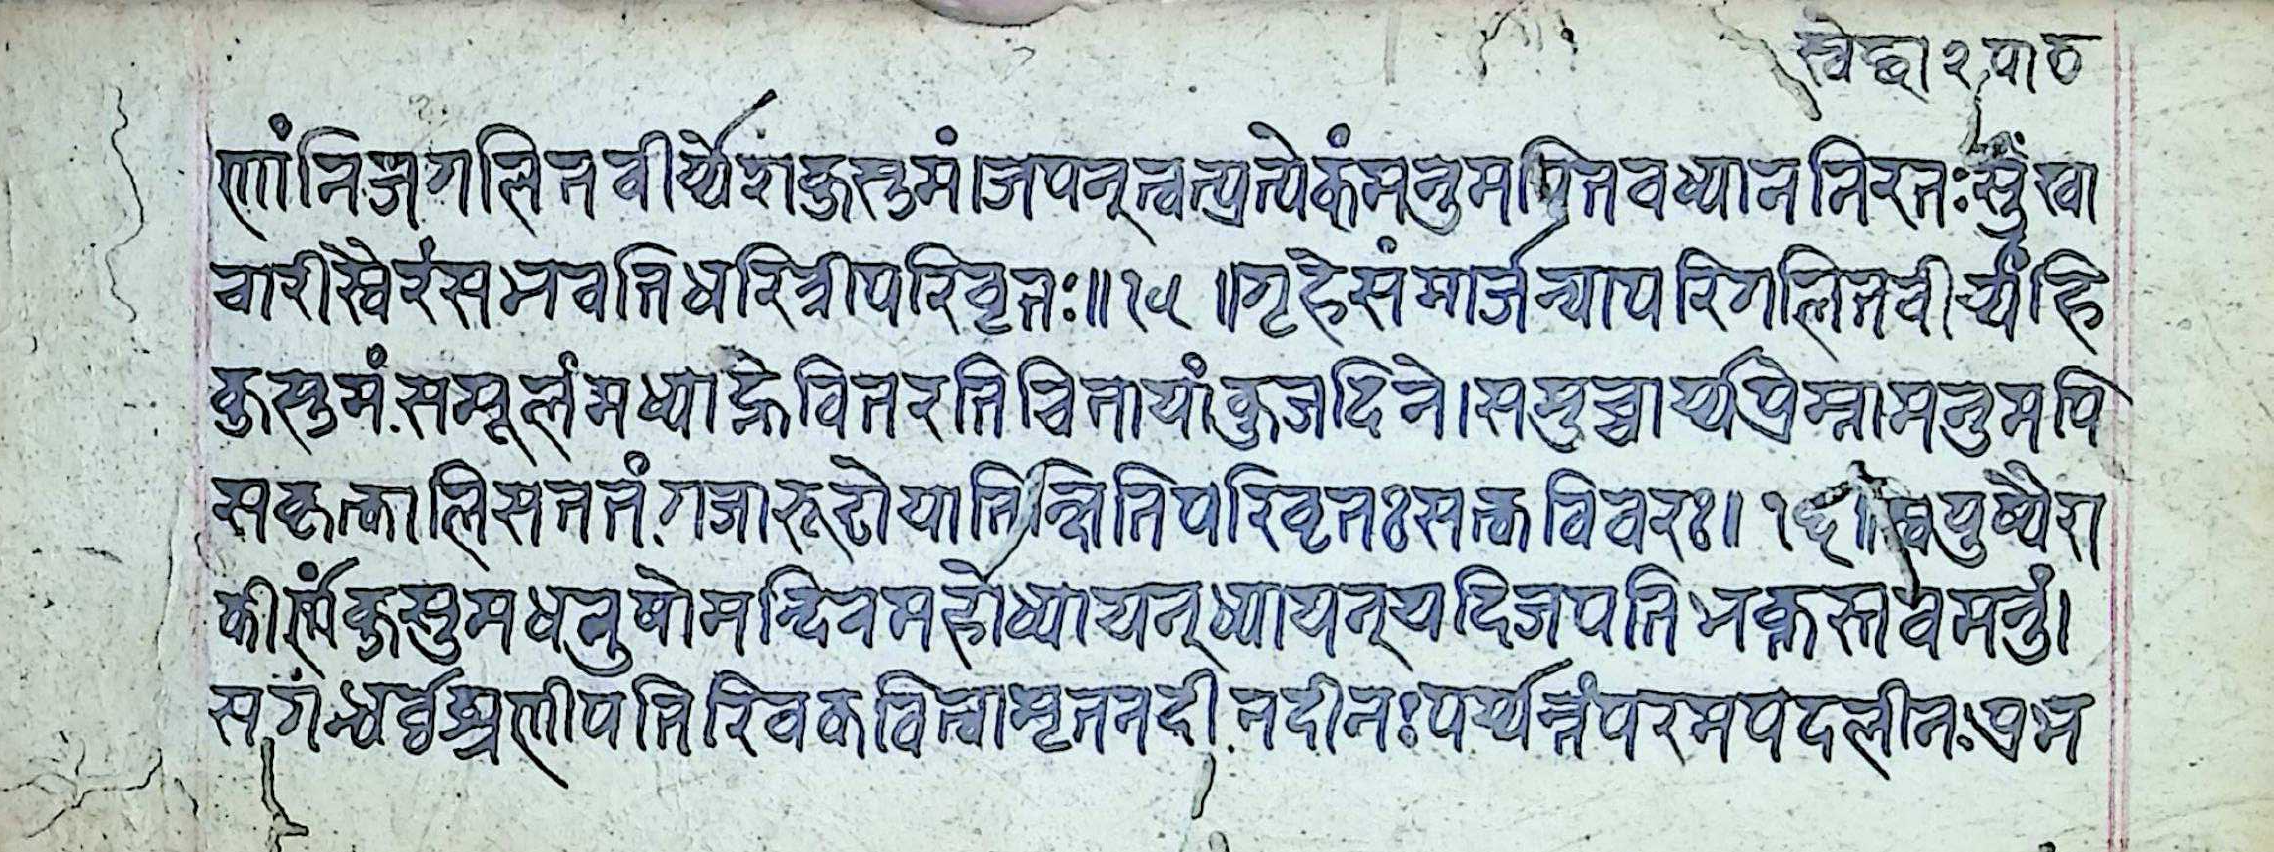 स्वेछा २ पाठ
णांनिजगलितवीर्य्येणकुसुमं।जपन्त्वत्प्रत्येकंमनुमपितवध्याननिरतःसुखा
चारीस्वैरंसभवतिधरित्रीपरिवृतः॥१५॥गृहेसंमार्जन्यापरिगलितवीर्य्यंहि
कुसुमं.समूलंमध्याह्नेवितरतिचितायांकुजदिने।समुच्चार्य्यप्रेम्नामनुमपि
सकृत्कालिसततं.गजारूढोयातिक्षितिपरिवृतःसत्कविवरः।१६॥स्वपुष्पैरा
कीर्णंकुसुमधनुषोमन्दिरमहोध्यायन्ध्यायन्यदिजपतिभक्तस्तवमनुं।
सगंन्धर्व्वश्रणीपतिरिवकवित्वामृतनदी.नदीनःपर्य्यन्तंपरमपदलीनःप्रभ